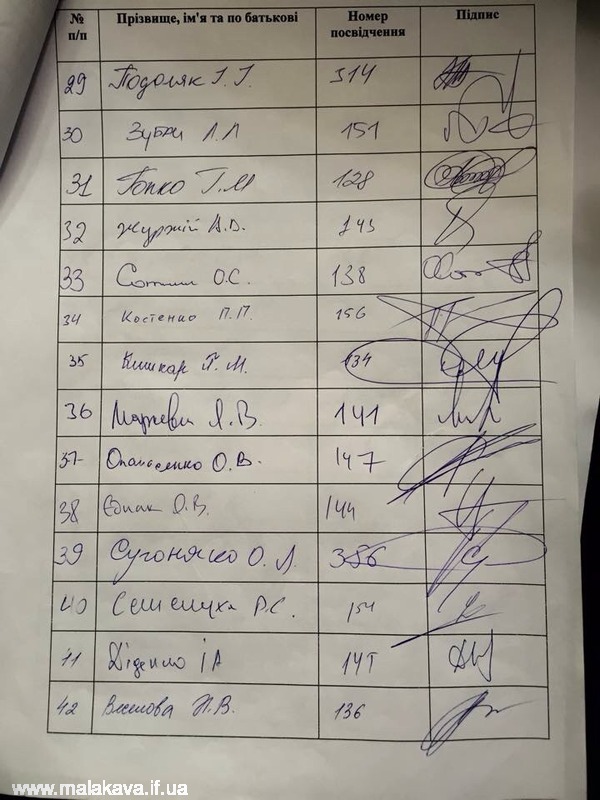 № Прізвище, ім'я та по батькові Номер Підпис
п/п посвідчення
29 Подоляк І. І. 314
30 Зубач Л.Л 151
31 Гопко Г.М 128
32 Журжій А.В. 143
33 Сотник О.С. 138
34 Костенко П.П. 156
35 Кишкар П.М. 134
36 Маркевич Я.В. 141
37 Опанасенко О.В. 147
38 Єднак О.В. 144
39 Сугоняко О.Л. 386
40 Семенуха Р.С. 154
41 Діденко ІА
42 Веселова Н.В. 136
www.malakava.if.ua